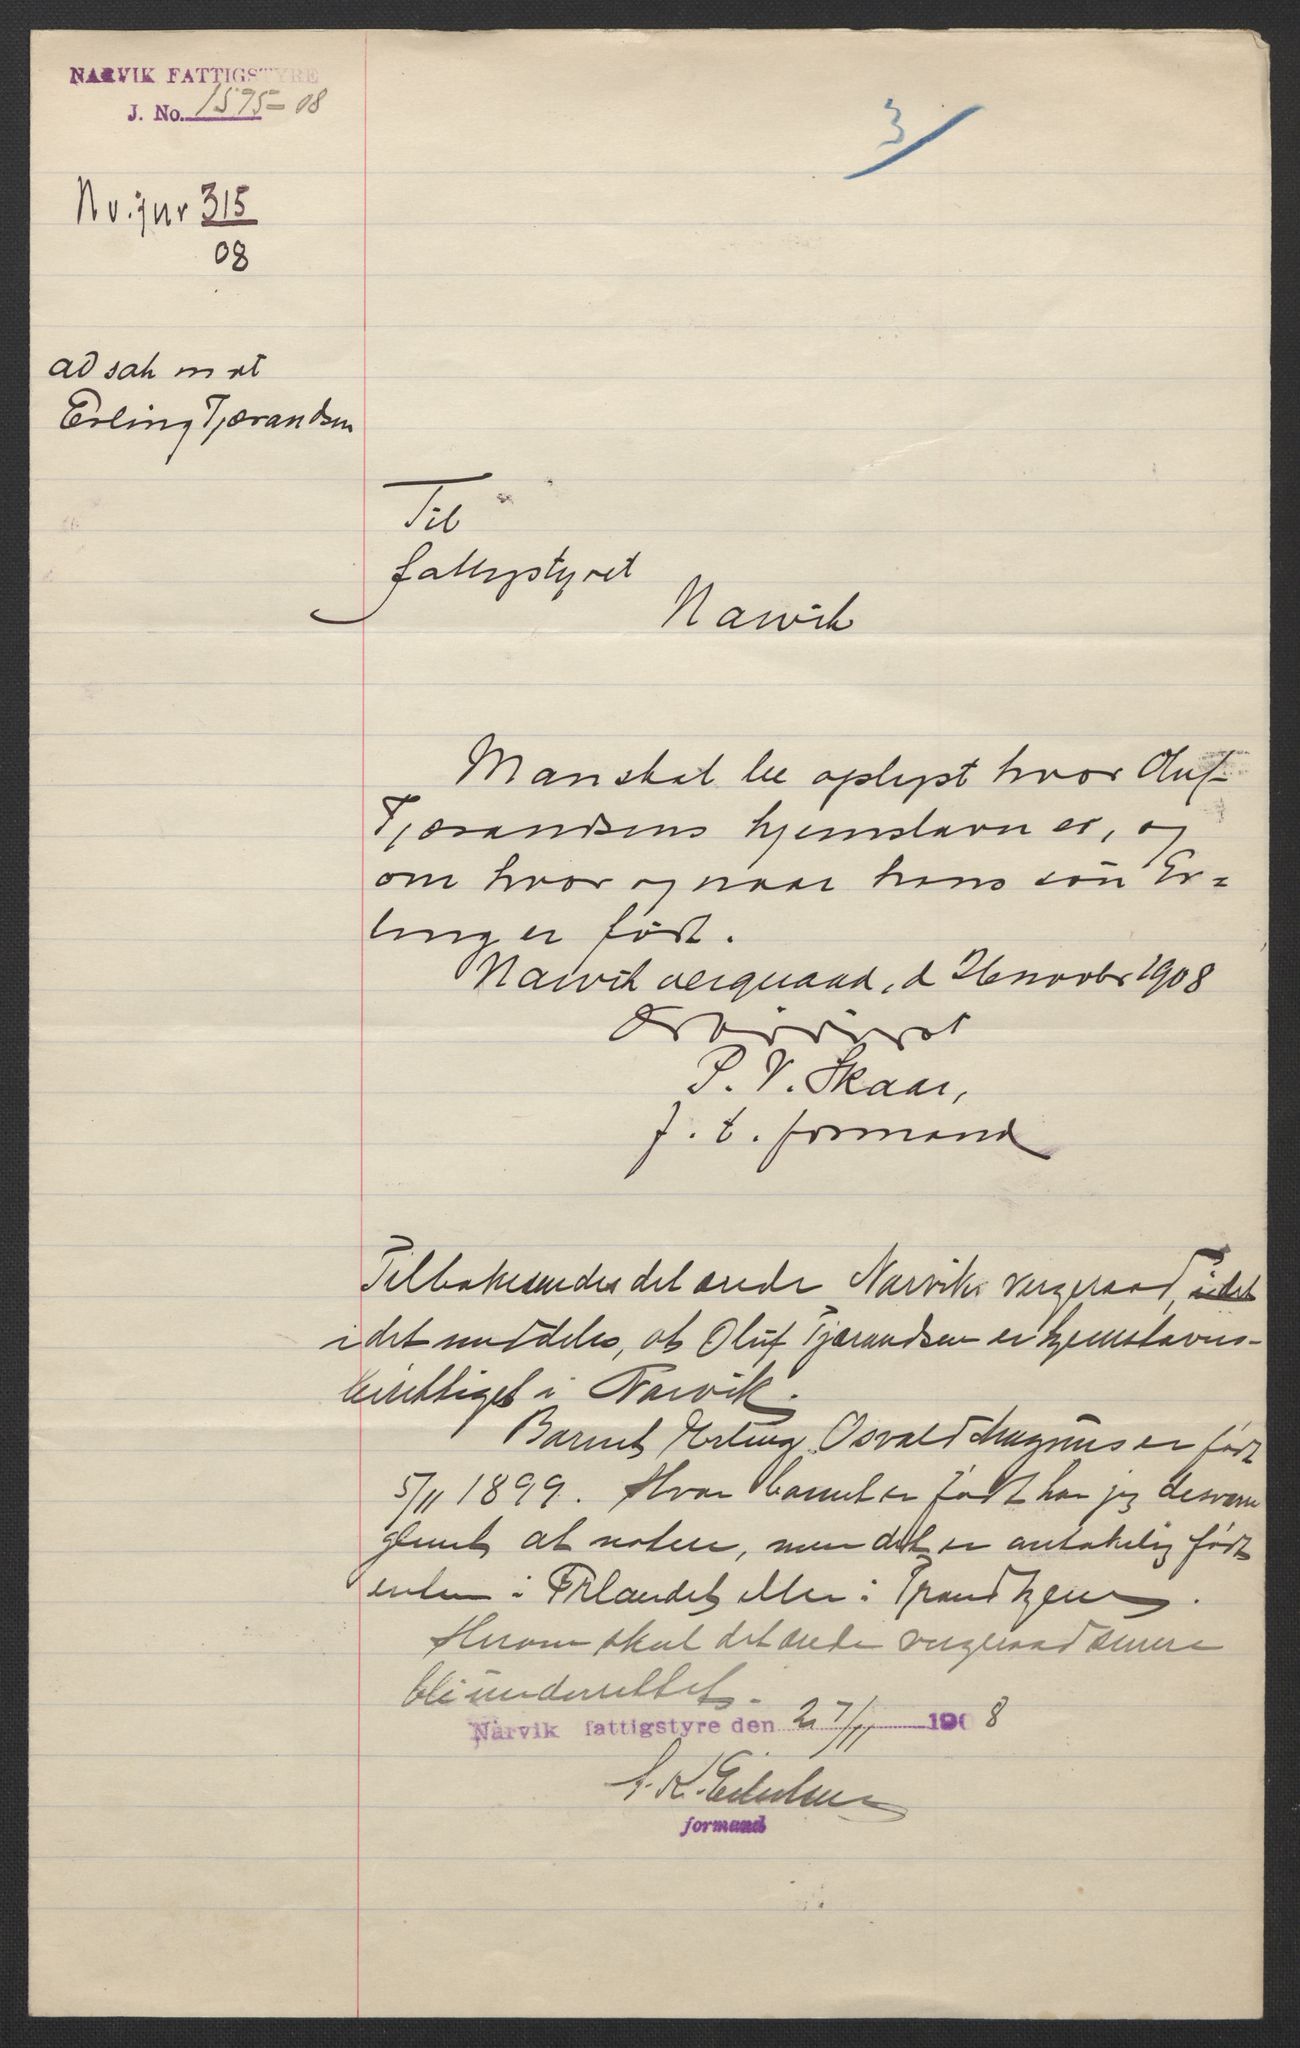 NARVIK FATTIGSTYRE
J. No. 1575-08
3
Nv. jnr 315
08
ad sak mot
Erling Tjærandsen
Til
fattigstyret
Narvik
Man skal be oplyst hvor Oluf
Tjærandsens hjemstavn er, og
om hvor og naar hans søn Er-
ling er født.
Narvik vergeraad, d 26 novbr 1908
Ærbødigst
P. V. Skaar,
f. t. formand
Tilbakesendes det ærede Narviks vergeraad, idet
idet meddeles, at Oluf Tjærandsen er hjemstavns-
berettiget i Narvik.
Barnet Erling Osvald Magnus er født
5/11 1899. Hvor barnet er født har jeg desværre
glemt at notere, men det er antakelig født
enten i eller i Trondhjem.
Herom skal det ærede vergeraad senere
bli underrettet.
Narvik fattigstyre den 27/11 1908
formand